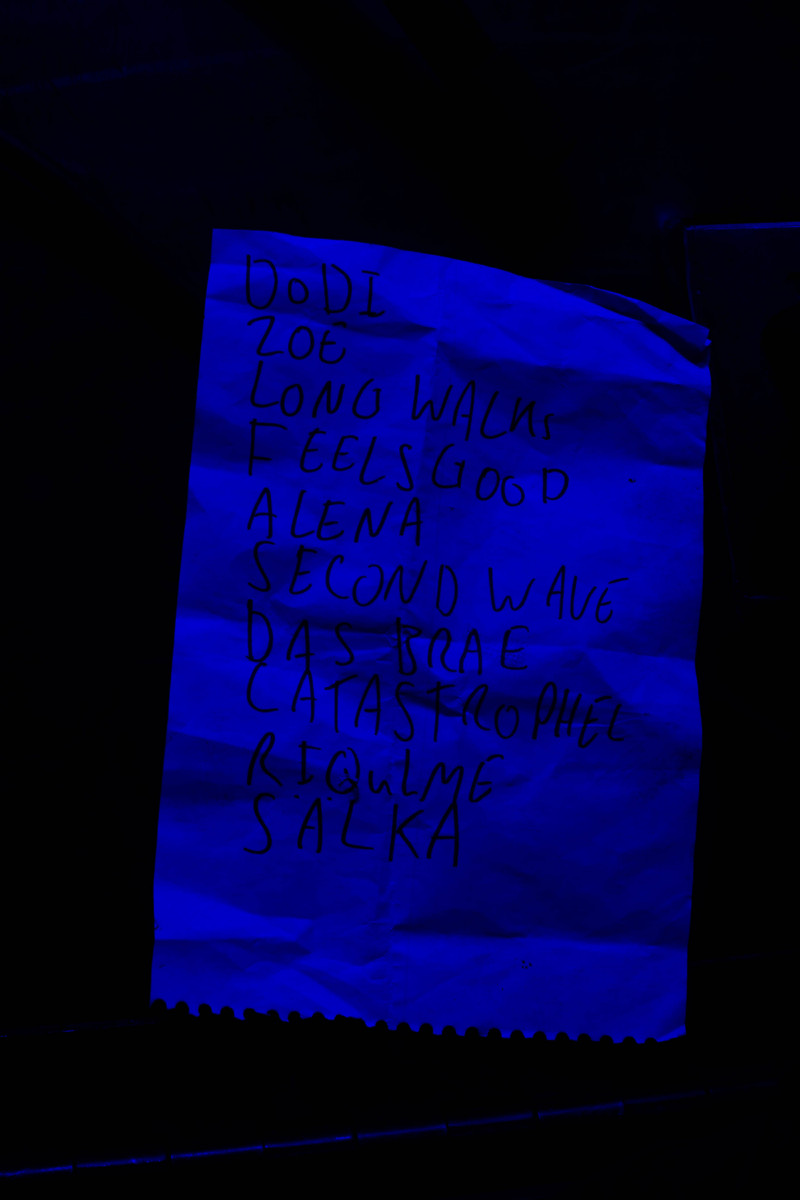 DODI
ZOE
LONG WALKS
FEELSGOOD
ALENA
SECOND WAVE
DAS BRAE
CATASTROPHEL
RIQULME
SALKA